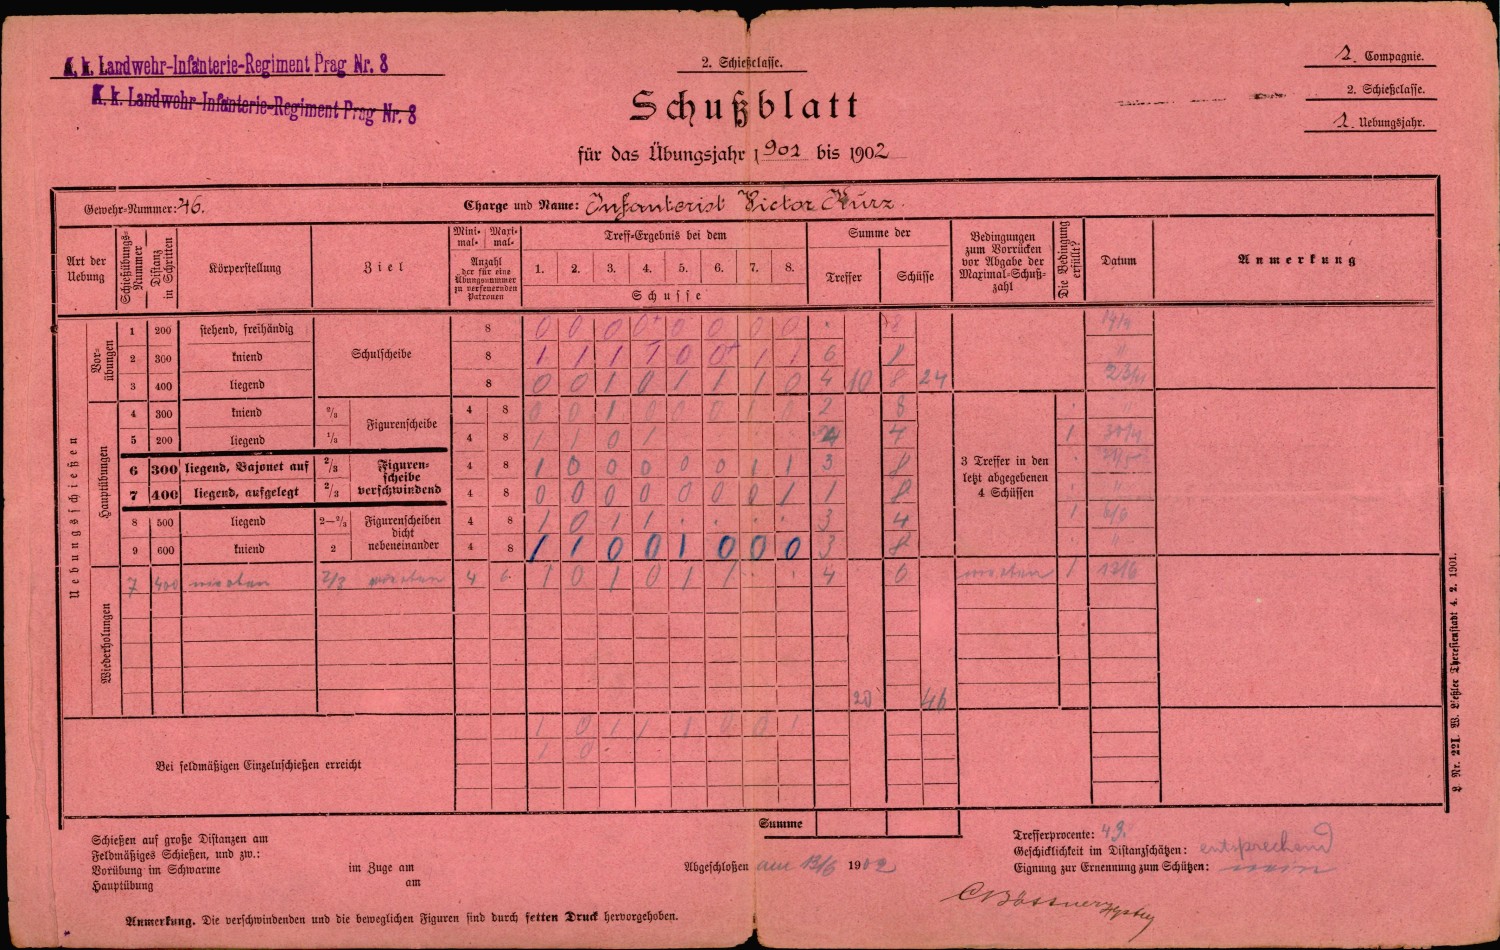 K. k. Landwehr-Infanterie-Regiment Prag Nr. 8
K. k. Landwehr-Infanterie-Regiment Prag Nr. 8
2. Schießclasse.
Schußblatt
für das Übungsjahr 1901 bis 1902
1. Compagnie.
2. Schießclasse.
1. Uebungsjahr.
Gewehr-Nummer: 46. Charge und Name: Infanterist Victor Kurz.
Art der Uebung
Schießübungs-Nummer
Distanz in Schritten
Körperstellung
Ziel
Mini-mal- Maxi-mal-
Anzahl der für eine Übungsnummer zu verfeuernden Patronen
Treff-Ergebnis bei dem
1. 2. 3. 4. 5. 6. 7. 8.
Schusse
Summe der
Treffer Schüsse
Bedingungen zum Vorrücken vor Abgabe der Maximal-Schuß-zahl
Die Bedingung erfüllt?
Datum
Anmerkung
Uebungsschießen
Vor-übungen
1 200 stehend, freihändig Schulscheibe 8 0 0 0 0+ 0 0 0 0 . 8 14/4
2 300 kniend 8 1 1 1 1 0 0+ 1 1 6 8 "
3 400 liegend 8 0 0 1 0 1 1 1 0 4 10 8 24
Hauptübungen
4 300 kniend 2/3 Figurenscheibe 4 8 0 0 1 0 0 0 0 0 2 8
5 200 liegend 1/3 4 8 1 1 0 1 4 1
6 300 liegend, Bajonet auf 2/3 Figuren-scheibe verschwindend 4 8 1 0 0 0 0 0 1 1 3 8
7 400 liegend, aufgelegt 2/3 4 8 0 0 0 0 0 0 0 1 1 8 "
3 Treffer in den letzt abgegebenen 4 Schüssen
8 500 liegend 2—2/3 Figurenscheiben dicht nebeneinander 4 8 1 0 1 1 . . . . 3 4 1
9 600 kniend 2 4 8 1 1 0 0 1 0 0 0 3 8 "
Wiederholungen
7 400 wie oben 2/3 wie oben 4 1 0 1 0 1 1 . . 4 wie oben 1 12/6
20 46
Bei feldmäßigen Einzelnschießen erreicht
1 0 1 1 1 0 0 1
1 0
Summe
Schießen auf große Distanzen am
Feldmäßiges Schießen, und zw.:
Vorübung im Schwarme im Zuge am
Hauptübung am
Abgeschloßen am 13/6 1902
Trefferprocente: 43.
Geschicklichkeit im Distanzschätzen: entsprechend
Eignung zur Ernennung zum Schützen: nein
Anmerkung. Die verschwindenden und die beweglichen Figuren sind durch fetten Druck hervorgehoben.
L. Nr. 221. W. Leßler Theresienstadt 4. 2. 1901.